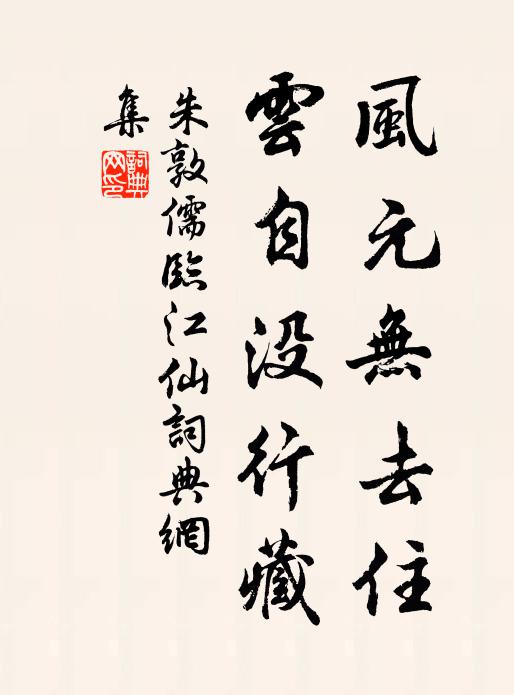 風元無去住
雲自没行藏
朱敦儒臨江仙詞典網
集
詞典
网印